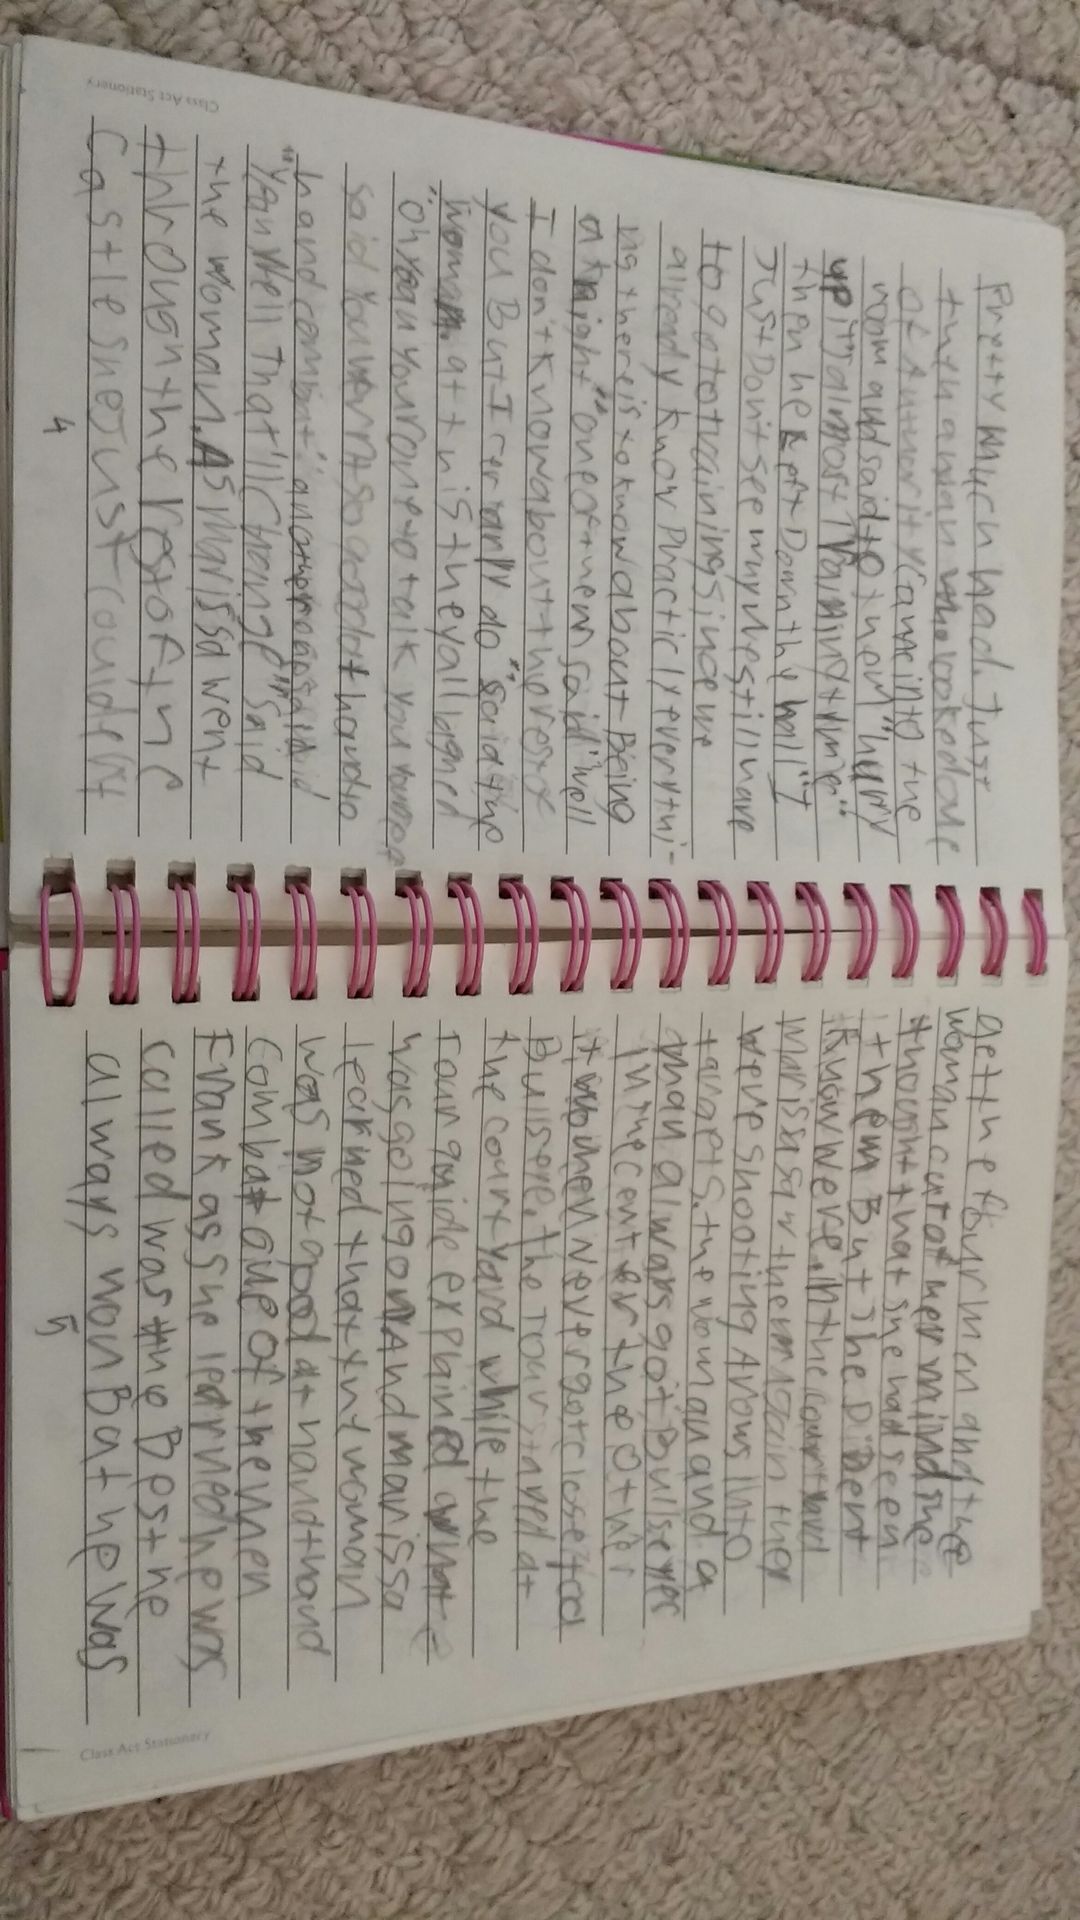 Pretty Much had. Just
then a man who looked one
of Authority came into the
room and said to them "hurry
up its almost Training time"
then he left Down the hall "I
Just Don't see why we still have
to go to training since we
already know Practicly everythi-
ng there is to know about Being
a knight" one of them said "well
I don't know about the rest of
you But I certanly do" said the
woman. at this they all laghed
"oh yeah your one to talk you
said you wern't so good at hand to
hand combat" another said
"Yeah well That'll change" said
the woman. As Marissa went
through the rest of the
Castle she Just couldent
4
get the four men and the
woman out of her mind she
thought that she had seen
them But she Diden't
Know were. in the courtyard
marissa saw them again they
were shooting Arrows into
targets. the woman and a
man always got Bullseyes
in the center the other
two men never got close to a
Bullseye. the Tour stayed at
the courtyard while the
Tour guide explained what
was going on And marissa
learned that the woman
was not good at hand to hand
Combat one of the men
Frank as she learned he was
called was the Best he
always won Bat he was
5
Class Act Stationery
Class Act Stationery